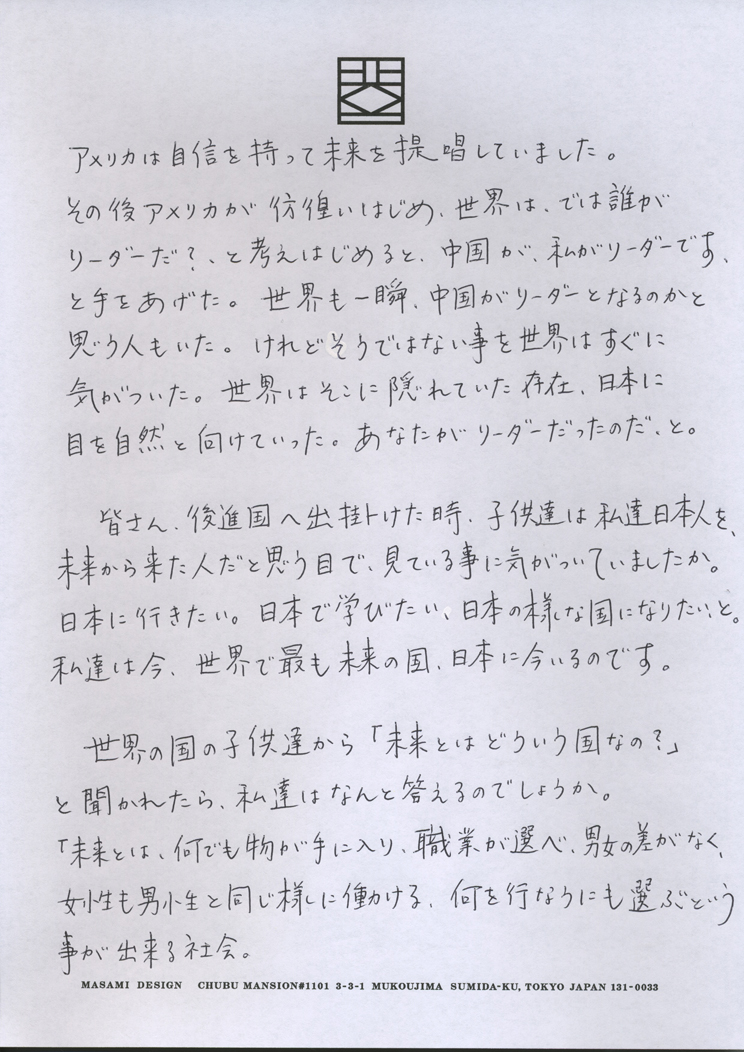 アメリカは自信を持って未来を提唱していました。
その後アメリカが彷徨いはじめ、世界は、では誰が
リーダーだ?、と考えはじめると、中国が、私がリーダーです、
と手をあげた。世界も一瞬、中国がリーダーとなるのかと
思う人もいた。けれどそうではない事を世界はすぐに
気がついた。世界はそこに隠れていた存在、日本に
目を自然と向けていった。あなたがリーダーだったのだ、と。
皆さん、後進国へ出掛けた時、子供達は私達日本人を、
未来から来た人だと思う目で、見ている事に気がついていましたか。
日本に行きたい。日本で学びたい、日本の様な国になりたい、と。
私達は今、世界で最も未来の国、日本に今いるのです。
世界の国の子供達から「未来とはどういう国なの?」
と聞かれたら、私達はなんと答えるのでしょうか。
「未来とは、何でも物が手に入り、職業が選べ、男女の差がなく、
女性も男性と同じ様に働ける、何を行なうにも選ぶという
事が出来る社会。
MASAMI DESIGN CHUBU MANSION#1101 3-3-1 MUKOUJIMA SUMIDA-KU, TOKYO JAPAN 131-0033